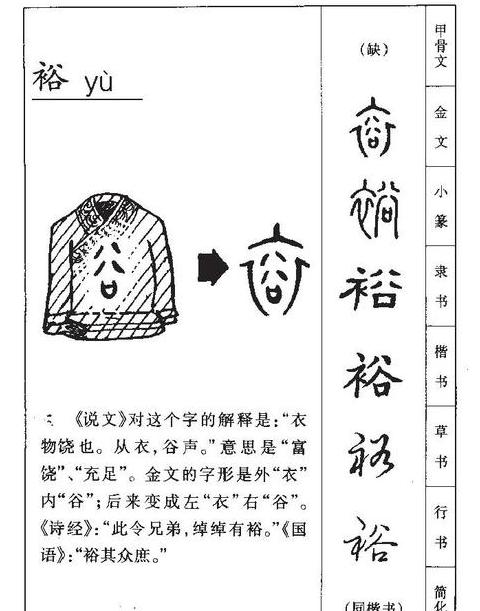 裕 yù
《说文》对这个字的解释是:“衣
物饶也。从衣,谷声。”意思是“富
饶”、“充足”。金文的字形是外“衣”
内“谷”;后来变成左“衣”右“谷”。
《诗经》:“此令兄弟,绰绰有裕。”《国
语》:“裕其众庶。”
(缺) 甲骨文
裕 金文
裕 小篆
裕 隶书
裕 楷书
裕 草书
裕 行书
(同楷书) 简化